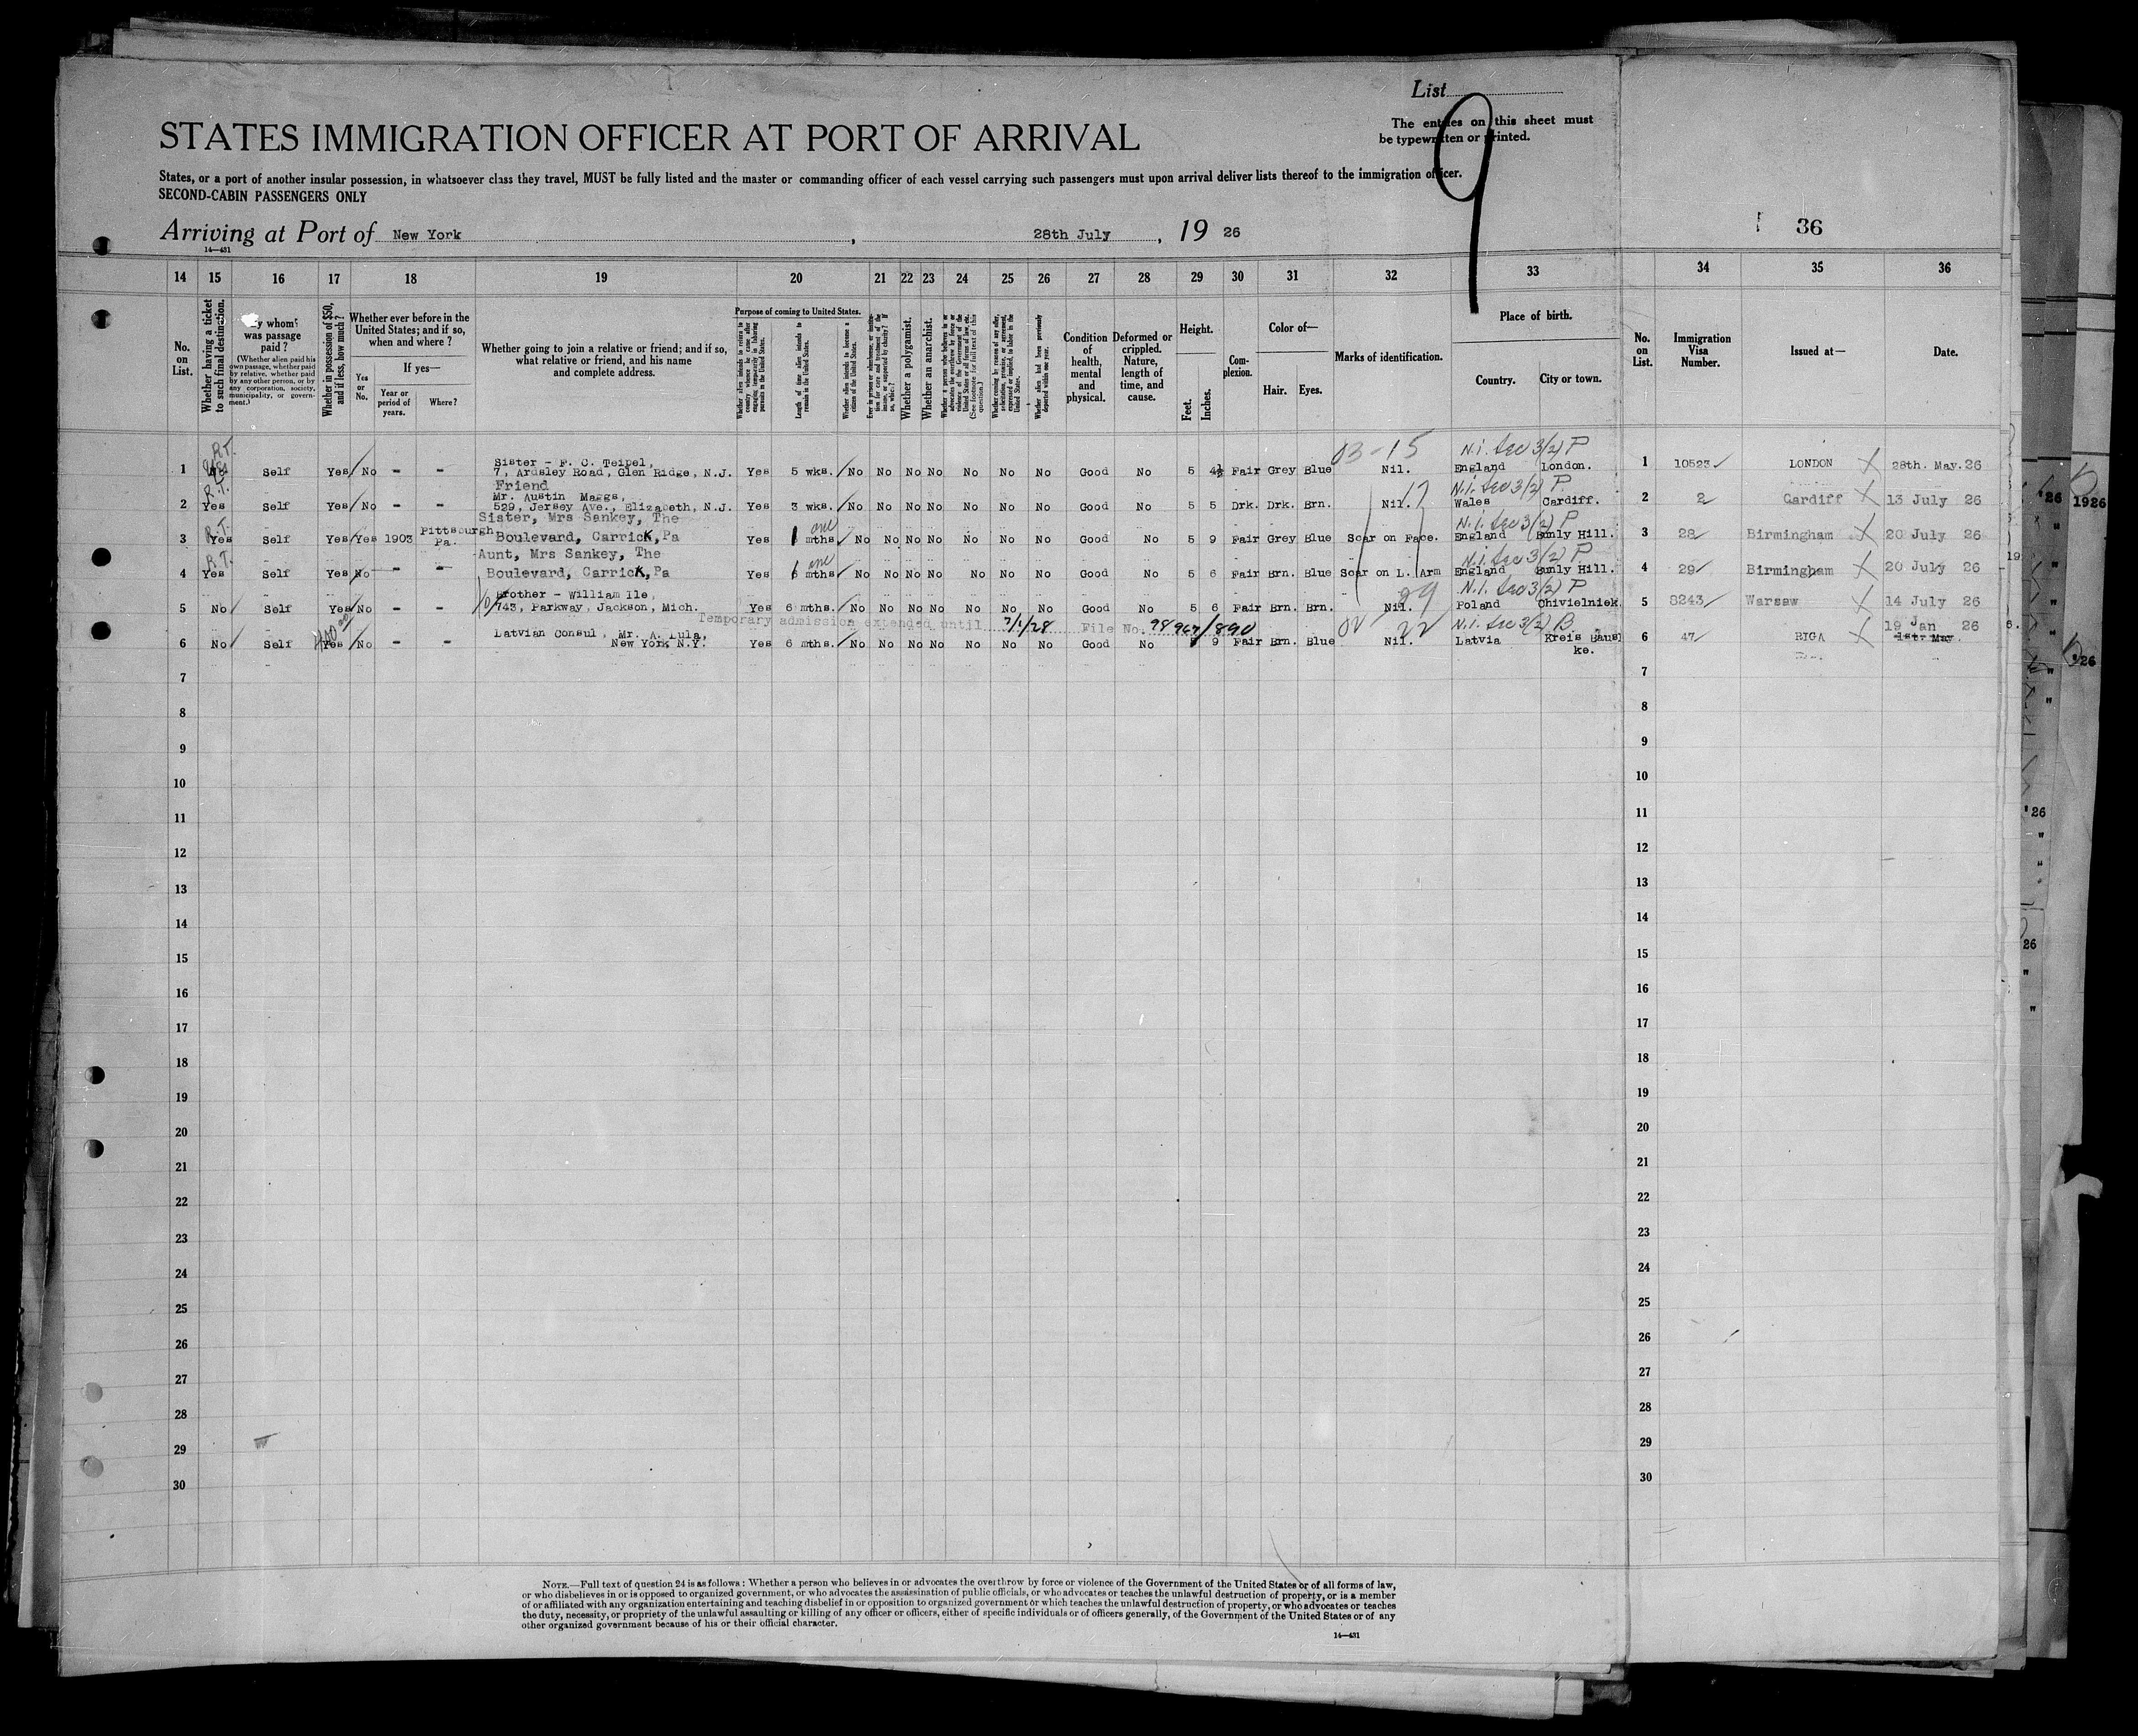 List
9
The entries on this sheet must
be typewritten or printed.
STATES IMMIGRATION OFFICER AT PORT OF ARRIVAL
States, or a port of another insular possession, in whatsoever class they travel, MUST be fully listed and the master or commanding officer of each vessel carrying such passengers must upon arrival deliver lists thereof to the immigration officer.
SECOND-CABIN PASSENGERS ONLY
Arriving at Port of New York, 28th July, 19 26
14—431
36
14 15 16 17 18 19 20 21 22 23 24 25 26 27 28 29 30 31 32 33 34 35 36
No. on List.
Whether having a ticket to such final destination.
By whom was passage paid?
(Whether alien paid his own passage, whether paid by relative, whether paid by any other person, or by any corporation, society, municipality, or government.)
Whether in possession of $50, and if less, how much?
Whether ever before in the United States; and if so, when and where?
Yes or No.
If yes—
Year or period of years.
Where?
Whether going to join a relative or friend; and if so, what relative or friend, and his name and complete address.
Purpose of coming to United States.
Whether alien intends to return to country whence he came after engaging temporarily in laboring pursuits in the United States.
Length of time alien intends to remain in the United States.
Whether alien intends to become a citizen of the United States.
Ever in prison or almshouse, or institution for care and treatment of the insane, or supported by charity? If so, which?
Whether a polygamist.
Whether an anarchist.
Condition of health, mental and physical.
Deformed or crippled. Nature, length of time, and cause.
Height.
Feet.
Inches.
Complexion.
Color of—
Hair.
Eyes.
Marks of identification.
Place of birth.
Country.
City or town.
No. on List.
Immigration Visa Number.
Issued at—
Date.
R.T. 03-15 N.I. Sec 3(2) P
Sister - F. C. Teipel,
1 Self Yes No - - 7, Ardsley Road, Glen Ridge, N.J. Yes 5 wks. No No No No No No No Good No 5 4½ Fair Grey Blue Nil. England London. 1 10523 LONDON 28th. May. 26
Friend
R.T. 17 N.I. Sec 3(2) P
Mr. Austin Maggs,
2 Yes Self Yes No - - 529, Jersey Ave., Elizabeth, N.J. Yes 3 wks. No No No No No No No Good No 5 5 Drk. Drk. Brn. Nil. Wales Cardiff. 2 2 Cardiff 13 July 26
Sister, Mrs Sankey, The
R.T. one N.I. Sec 3(2) P
3 Yes Self Yes Yes 1903 Pittsburgh Pa. Boulevard, Carrick, Pa Yes mths No No No No No No No Good No 5 9 Fair Grey Blue Scar on Face. England Bunly Hill. 3 28 Birmingham 20 July 26
Aunt, Mrs Sankey, The
R.T. one N.I. Sec 3(2) P
4 Yes Self Yes No - - Boulevard, Carrick, Pa Yes mths No No No No No No No Good No 5 6 Fair Brn. Blue Scar on L. Arm England Bunly Hill. 4 29 Birmingham 20 July 26
Brother - William Ile, 29 N.I. Sec 3(2) P
5 No Self Yes No - - 743, Parkway, Jackson, Mich. Yes 6 mths. No No No No No No No Good No 5 6 Fair Brn. Brn. Nil. Poland Chivielniek. 5 8243 Warsaw 14 July 26
Temporary admission extended until 7/1/28 File No. 98967/890
02 22 N.I. Sec 3(2) B
19 Jan 26
Latvian Consul, Mr. A. Lula,
6 No Self Yes No - - New York N.Y. Yes 6 mths. No No No No No No No Good No 5 9 Fair Brn. Blue Nil. Latvia Kreis Bauske. 6 47 RIGA 1st. May.
7 7
8 8
9 9
10 10
11 11
12 12
13 13
14 14
15 15
16 16
17 17
18 18
19 19
20 20
21 21
22 22
23 23
24 24
25 25
26 26
27 27
28 28
29 29
30 30
NOTE.—Full text of question 24 is as follows: Whether a person who believes in or advocates the overthrow by force or violence of the Government of the United States or of all forms of law,
or who disbelieves in or is opposed to organized government, or who advocates the assassination of public officials, or who advocates or teaches the unlawful destruction of property, or is a member
of or affiliated with any organization entertaining and teaching disbelief in or opposition to organized government or which teaches the unlawful destruction of property, or who advocates or teaches
the duty, necessity, or propriety of the unlawful assaulting or killing of any officer or officers, either of specific individuals or of officers generally, of the Government of the United States or of any
other organized government because of his or their official character.
14—431